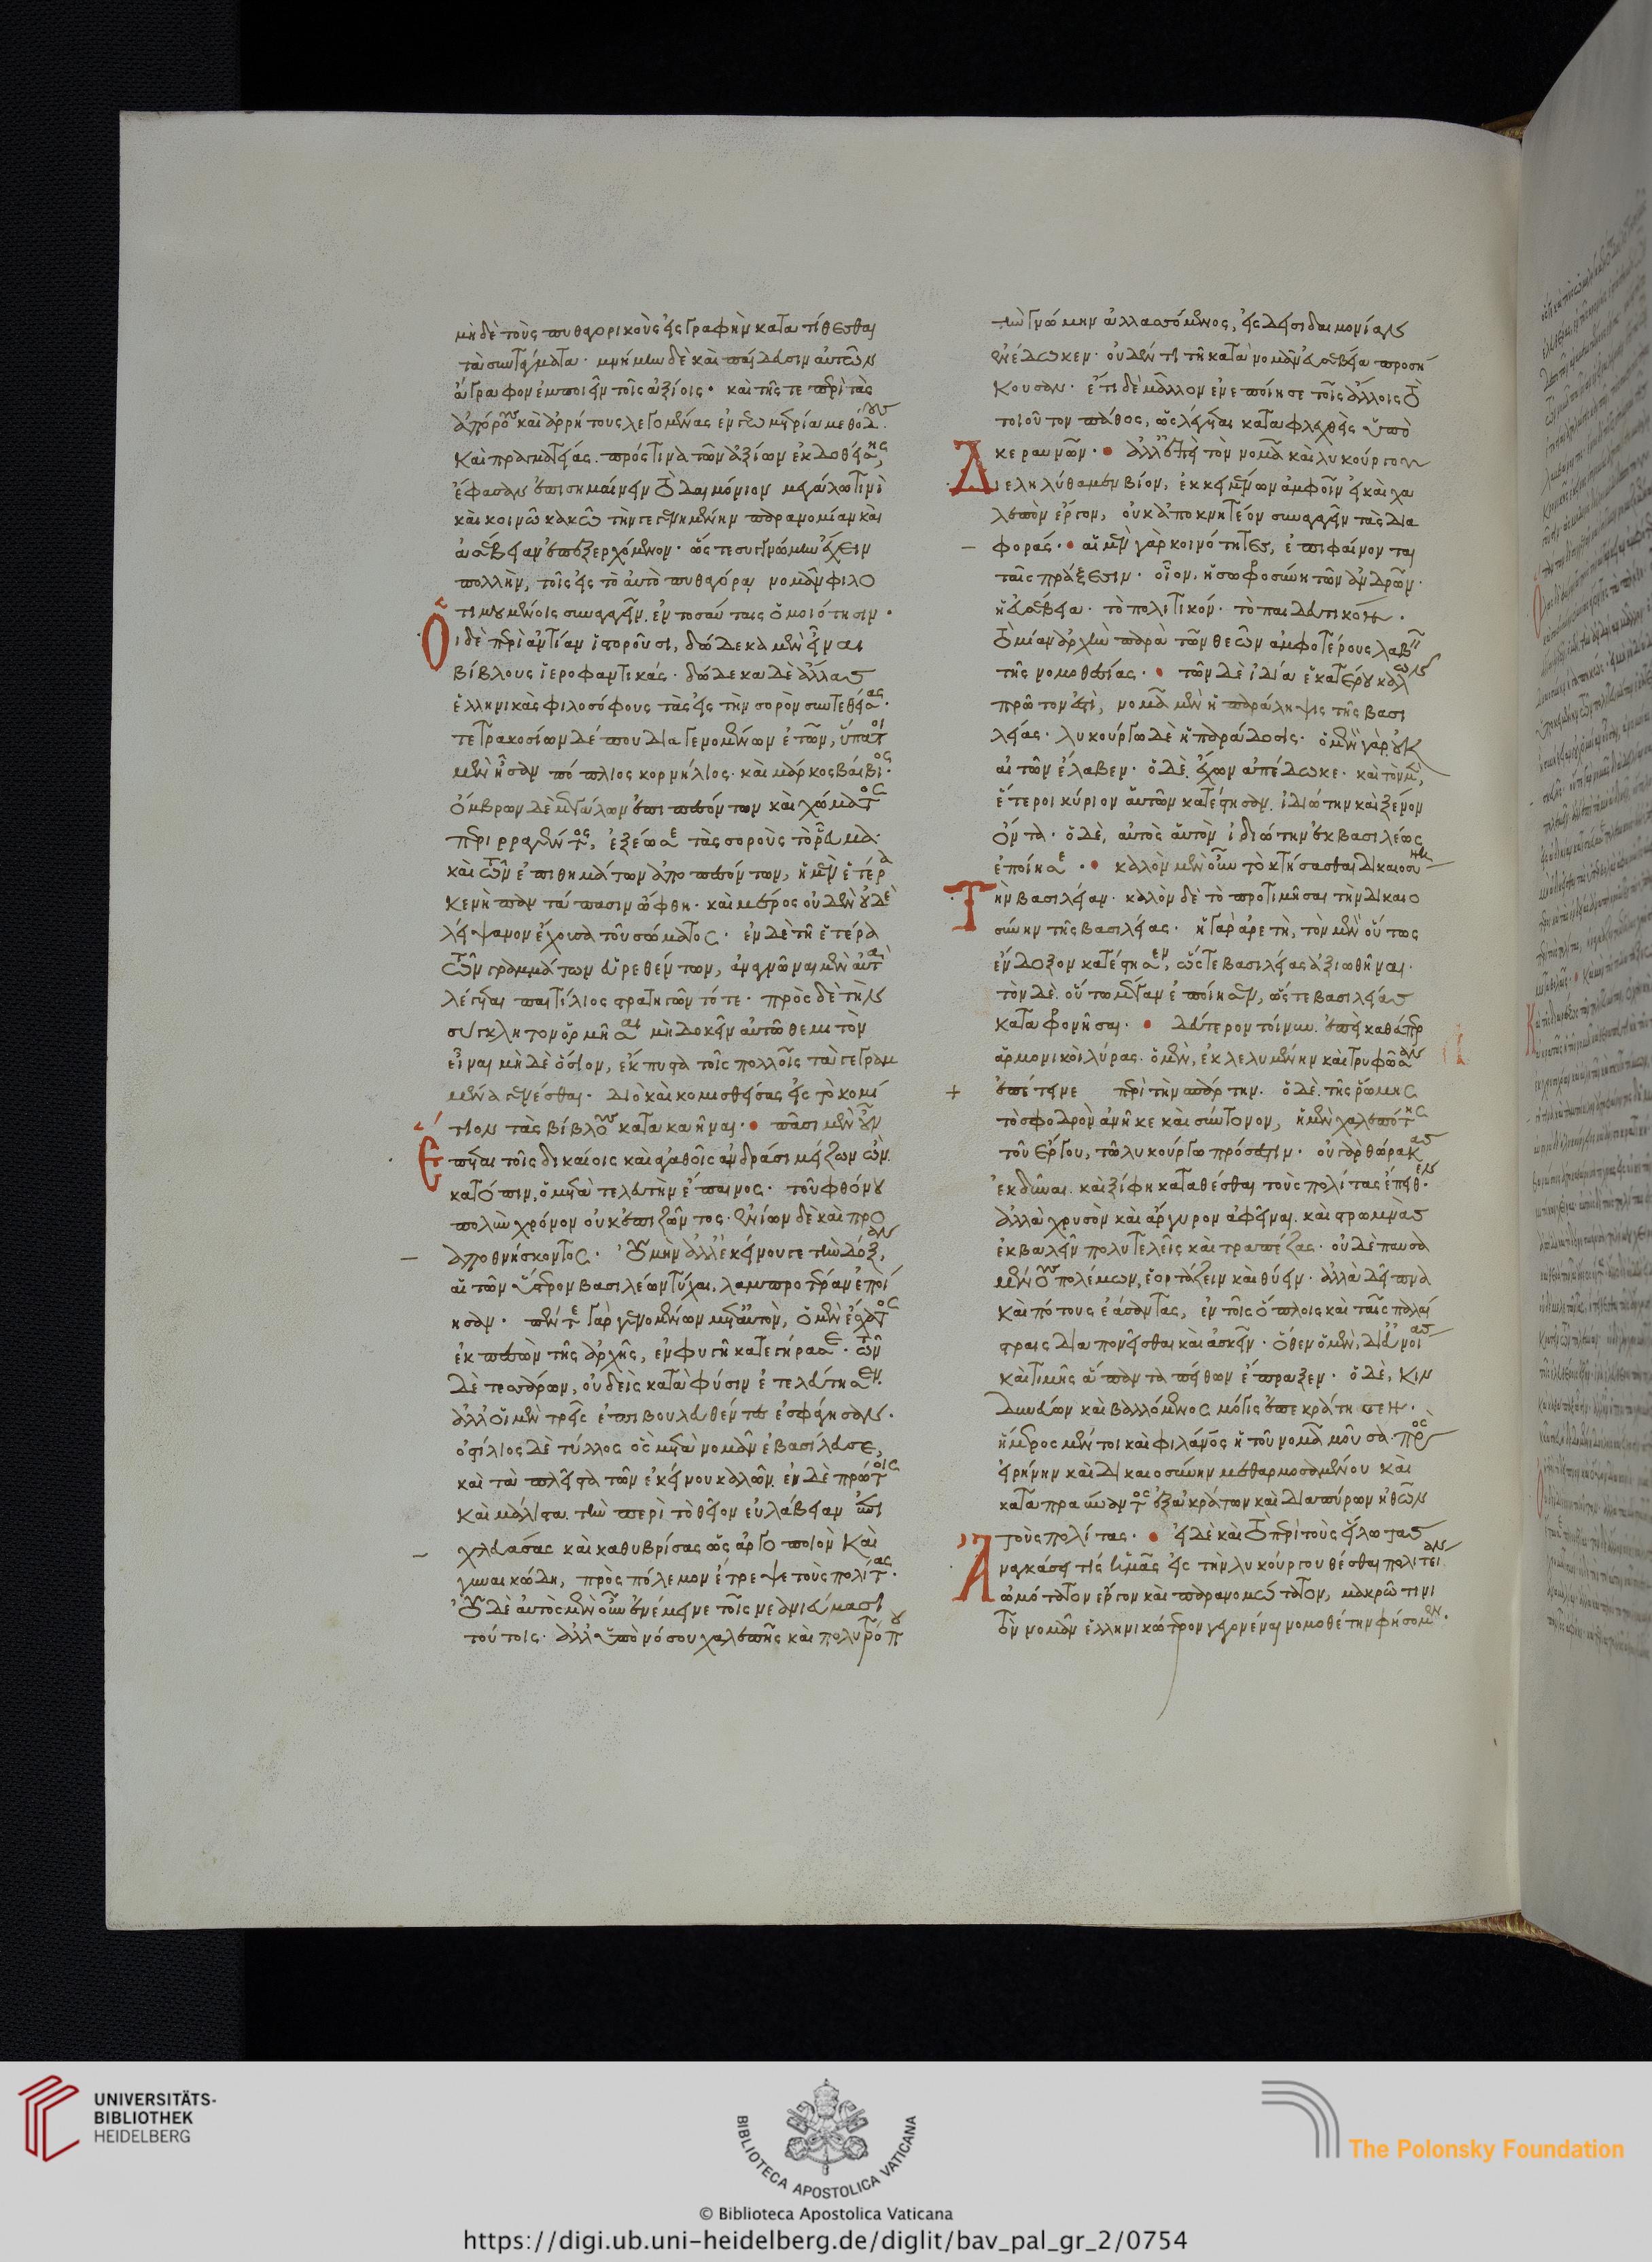 μὴ δὲ τοὺς πυθαγορικοὺς εἰς γραφὴν κατατίθεσθαι
τὰ συντάγματα· μνήμην δὲ καὶ παίδευσιν αὐτῶν
ἄγραφον ἐμποιεῖν τοῖς ἀξίοις· καὶ τῆς τε περὶ τὰς
ἀπόρους καὶ ἀρρήτους λεγομένας ἐν γεωμετρία μεθόδους
καὶ πραγματείας. πρός τινα τῶν ἀξίων ἐκδοθείσης,
ἔφασαν ἐπισημαίνειν τὸ δαιμόνιον μεγάλω τινὶ
καὶ κοινῶ κακῶ τὴν γεγενημένην παρανομίαν καὶ
ἀσέβειαν ἐπεξερχόμενον· ὥστε συγγνώμην ἔχειν
πολλὴν, τοῖς εἰς τὸ αὐτὸ πυθαγόρα νομᾶν φιλο
τιμουμένοις συναγαγεῖν. ἐν τοσαύταις ὁμοιότησιν·
Οἱ δὲ περὶ ἀντίαν ἱστοροῦσι, δώδεκα μὲν εἶναι
βίβλους ἱεροφαντικάς· δώδεκα δὲ ἄλλας
ἑλληνικὰς φιλοσόφους τὰς εἰς τὴν σορὸν συντεθείσας.
τετρακοσίων δέ που διαγενομένων ἐτῶν, ὕπατοι
μὲν ἦσαν πόπλιος κορνήλιος· καὶ μάρκος βαίβιος.
ὄμβρων δὲ μεγάλων ἐπιπεσόντων καὶ χώματος
περιρραγέντος, ἐξέωσε τὰς σοροὺς τὸ ῥεῦμα·
καὶ τῶν ἐπιθημάτων ἀποπεσόντων, ἡ μὲν ἑτέρα
κενὴ παντάπασιν ὤφθη· καὶ μέρος οὐδὲν οὐδὲ
λείψανον ἔχουσα τοῦ σώματος· ἐν δὲ τῆ ἑτέρα
τῶν γραμμάτων εὑρεθέντων, ἀναγνῶναι μὲν αὐτὰ
λέγεται πετίλιος στρατηγῶν τότε· πρὸς δὲ τὴν
σύγκλητον ὁρμῆσαι μὴ δοκεῖν αὐτῶ θεμιτὸν
εἶναι μὴ δὲ ὅσιον, ἔκπυστα τοῖς πολλοῖς τὰ γεγραμ
μένα γενέσθαι· διὸ καὶ κομισθείσας εἰς τὸ κομί
τιον τὰς βίβλους κατακαῆναι· πᾶσι μὲν οὖν
Ἕπεται τοῖς δικαίοις καὶ ἀγαθοῖς ἀνδράσι μείζων ὢν
κατόπιν, ὁ μετὰ τελευτὴν ἔπαινος· τοῦ φθόνου
πολὺν χρόνον οὐκ ἐπιζῶντος· ἐνίων δὲ καὶ προ
αποθνήσκοντος· Οὐ μὴν ἀλλ' ἐκείνου γε τὴν δόξαν,
αἱ τῶν ὕστερον βασιλέων τύχαι, λαμπροτέραν ἐποί
ησαν· πέντε γὰρ γενομένων μετ' αὐτὸν, ὁ μὲν ἔσχατος
ἐκπεσὼν τῆς ἀρχῆς, ἐν φυγῆ κατεγήρασε· τῶν
δὲ τεσσάρων, οὐδεὶς κατὰ φύσιν ἐτελεύτησεν.
ἀλλ' οἱ μὲν τρεῖς ἐπιβουλευθέντες ἐσφάγησαν·
ὁστίλιος δὲ τύλλος ὃς μετὰ νομᾶν ἐβασίλευσε,
καὶ τὰ πλεῖστα τῶν ἐκείνου καλῶν. ἐν δὲ πρώτοις
καὶ μάλιστα τὴν περὶ τὸ θεῖον εὐλάβειαν ἐπι
χλευάσας καὶ καθυβρίσας ὡς ἀργοποιὸν καὶ
γυναικώδη, πρὸς πόλεμον ἔτρεψε τοὺς πολίτας.
Οὐδὲ αὐτὸς μὲν οὖν ἐνέμεινε τοῖς νεανιεύμασι
τούτοις· ἀλλ' ὑπὸ νόσου χαλεπῆς καὶ πολυτρόπου
τὴν γνώμην ἀλλασσόμενος, εἰς δεισιδαιμονίαν
ἐνέδωκεν· οὐδέν τι τῆ κατὰ νομᾶν εὐσεβεία προσή
κουσαν· ἔτι δὲ μᾶλλον ἐνεποίησε τοῖς ἄλλοις τὸ
τοιοῦτον πάθος, ὡς λέγεται καταφλεχθεὶς ὑπὸ
κεραυνῶν· ἀλλ' ἐπεὶ τὸν νομᾶ καὶ λυκούργου
Διεληλύθαμεν βίον, ἐκκειμένων ἀμφοῖν εἰ καὶ χα
λεπὸν ἔργον, οὐκ ἀποκνητέον συναγαγεῖν τὰς δια
φοράς· αἱ μὲν γὰρ κοινότητες, ἐπιφαίνονται
ταῖς πράξεσιν· οἷον, ἡ σωφροσύνη τῶν ἀνδρῶν·
ἡ εὐσέβεια· τὸ πολιτικόν· τὸ παιδευτικόν·
τὸ μίαν ἀρχὴν παρὰ τῶν θεῶν ἀμφοτέρους λαβεῖν
τῆς νομοθεσίας· τῶν δὲ ἰδία ἑκατέρου καλῶν
πρῶτον ἐστὶ, νομᾶ μὲν ἡ παράληψις τῆς βασι
λείας· λυκούργω δὲ ἡ παράδοσις· ὁ μὲν γὰρ οὐκ
αἰτῶν ἔλαβεν· ὁ δὲ ἔχων ἀπέδωκε· καὶ τὸν μὲν,
ἕτεροι κύριον αὑτῶν κατέστησαν. ἰδιώτην καὶ ξένον
ὄντα· ὁ δὲ, αὐτὸς αὑτὸν ἰδιώτην ἐκ βασιλέως
ἐποίησε· καλὸν μὲν οὖν τὸ κτήσασθαι δικαιοσύνη
Τὴν βασιλείαν· καλὸν δὲ τὸ προτιμῆσαι τὴν δικαιο
σύνην τῆς βασιλείας· ἡ γὰρ ἀρετὴ, τὸν μὲν οὕτως
ἔνδοξον κατέστησεν, ὥστε βασιλείας ἀξιωθῆναι·
τὸν δὲ οὕτω μέγαν ἐποίησεν, ὥστε βασιλείας
καταφρονῆσαι· δεύτερον τοίνυν ἐπεὶ καθάπερ
ἁρμονικοὶ λύρας· ὁ μὲν, ἐκλελυμένην καὶ τρυφῶσαν
ἐπέτεινε περὶ τὴν σπάρτην. ὁ δὲ, τῆς ῥώμης
τὸ σφοδρὸν ἀνῆκε καὶ σύντονον, ἡ μὲν χαλεπότης
τοῦ ἔργου, τῶ λυκούργω πρόσεστιν· οὐ γὰρ θώρακας
ἐκδῦναι. καὶ ξίφη καταθέσθαι τοὺς πολίτας ἔπειθεν·
ἀλλὰ χρυσὸν καὶ ἄργυρον ἀφεῖναι. καὶ στρωμνὰς
ἐκβαλεῖν πολυτελεῖς καὶ τραπέζας· οὐδὲ παυσα
μένους πολέμων, ἑορτάζειν καὶ θύειν· ἀλλὰ δεῖπνα
καὶ πότους ἐάσαντας, ἐν τοῖς ὅπλοις καὶ ταῖς παλαί
στραις διαπονεῖσθαι καὶ ἀσκεῖν· ὅθεν ὁ μὲν, δι' εὔνοιας
καὶ τιμῆς ἅπαντα πείθων ἔπραξεν· ὁ δὲ, κιν
δυνεύων καὶ βαλλόμενος μόλις ἐπεκράτησεν·
ἥμερος μέντοι καὶ φιλάνθρωπος ἡ τοῦ νομᾶ μοῦσα πρὸς
εἰρήνην καὶ δικαιοσύνην μεθαρμοσαμένου καὶ
καταπραΰναντος ἐξ ἀκράτων καὶ διαπύρων ἠθῶν
τοὺς πολίτας· εἰ δὲ καὶ τὸ περὶ τοὺς εἵλωτας
Ἀναγκάσει τίς ἡμᾶς εἰς τὴν λυκούργου θέσθαι πολιτείαν
ὠμότατον ἔργον καὶ παρανομώτατον, μακρῶ τινι
τὸν νομᾶν ἑλληνικώτερον γεγονέναι νομοθέτην φήσομεν.
UNIVERSITÄTS-
BIBLIOTHEK
HEIDELBERG
BIBLIOTECA APOSTOLICA VATICANA
The Polonsky Foundation
© Biblioteca Apostolica Vaticana
https://digi.ub.uni-heidelberg.de/diglit/bav_pal_gr_2/0754